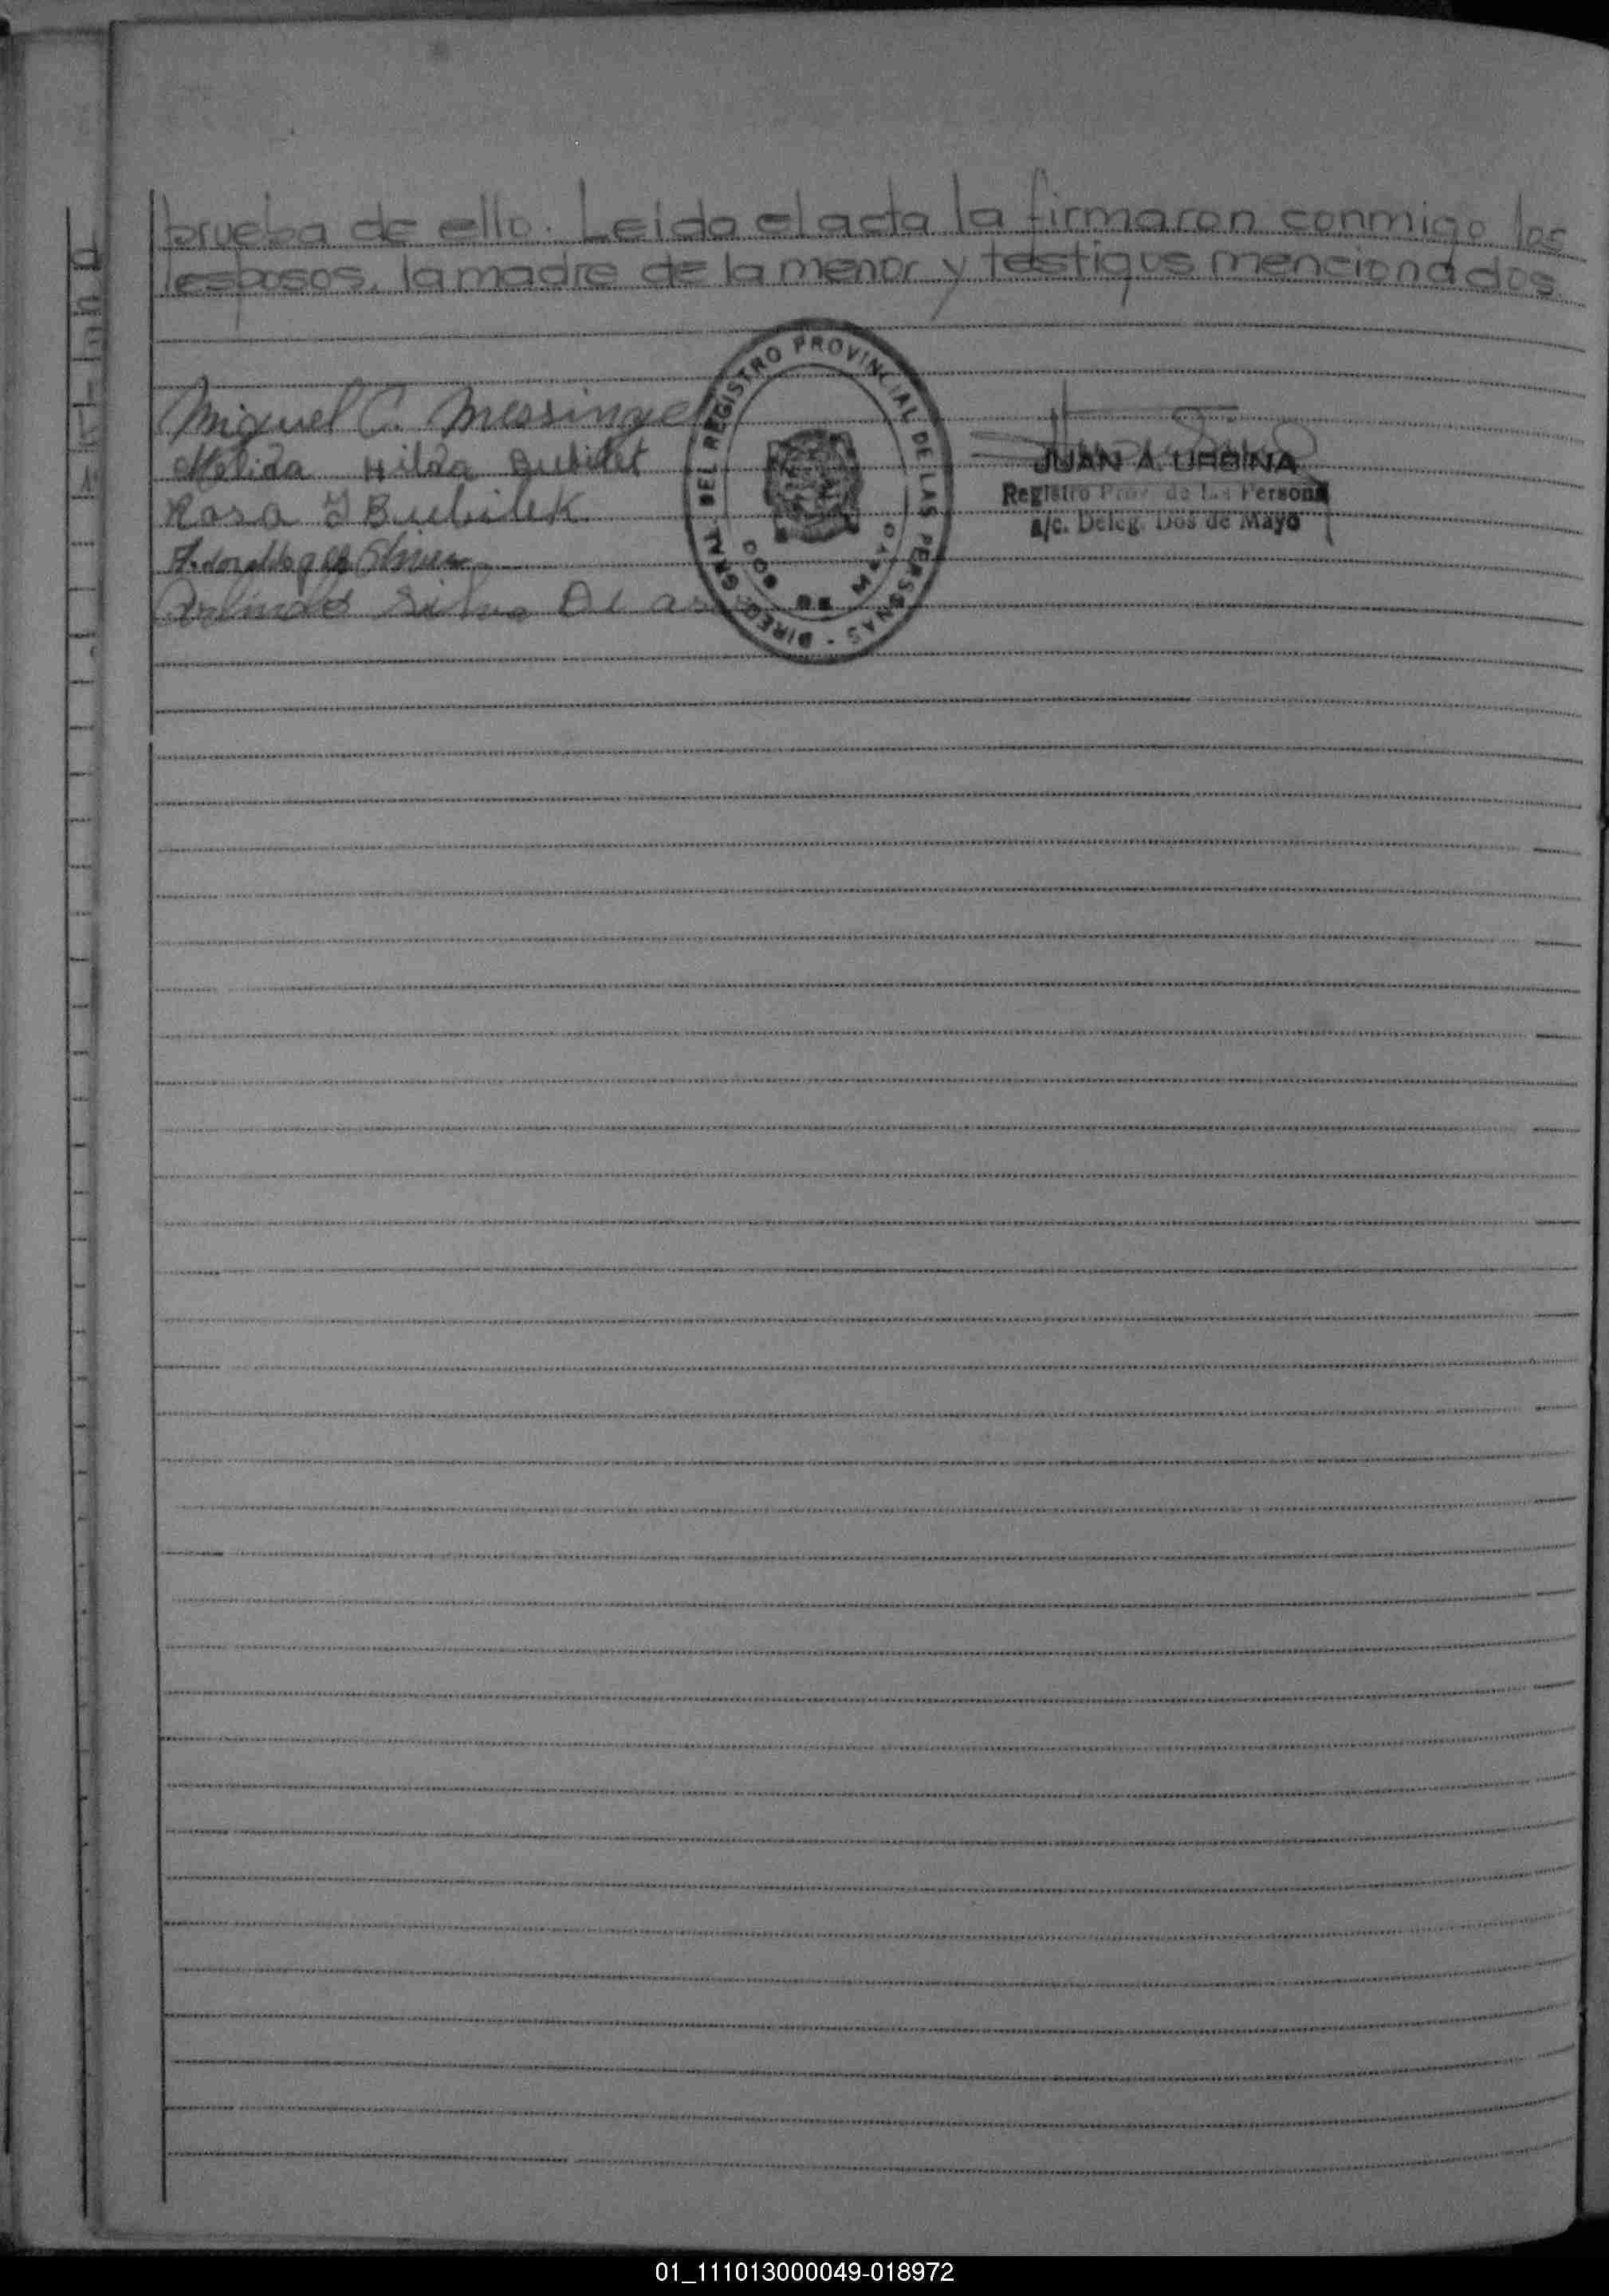 prueba de ello. Leida el acta la firmaron conmigo los
esposos, la madre de la menor y testigos mencionados
Miguel C. Messinger
Melida Hilda Bubilek
Rosa I Bubilek
Silva De
DIREC. GRAL. DEL REGISTRO PROVINCIAL DE LAS PERSONAS -
DOS DE MAYO
JUAN A. URBINA
Registro Prov. de las Persona
a/c. Deleg. Dos de Mayo
01_111013000049-018972